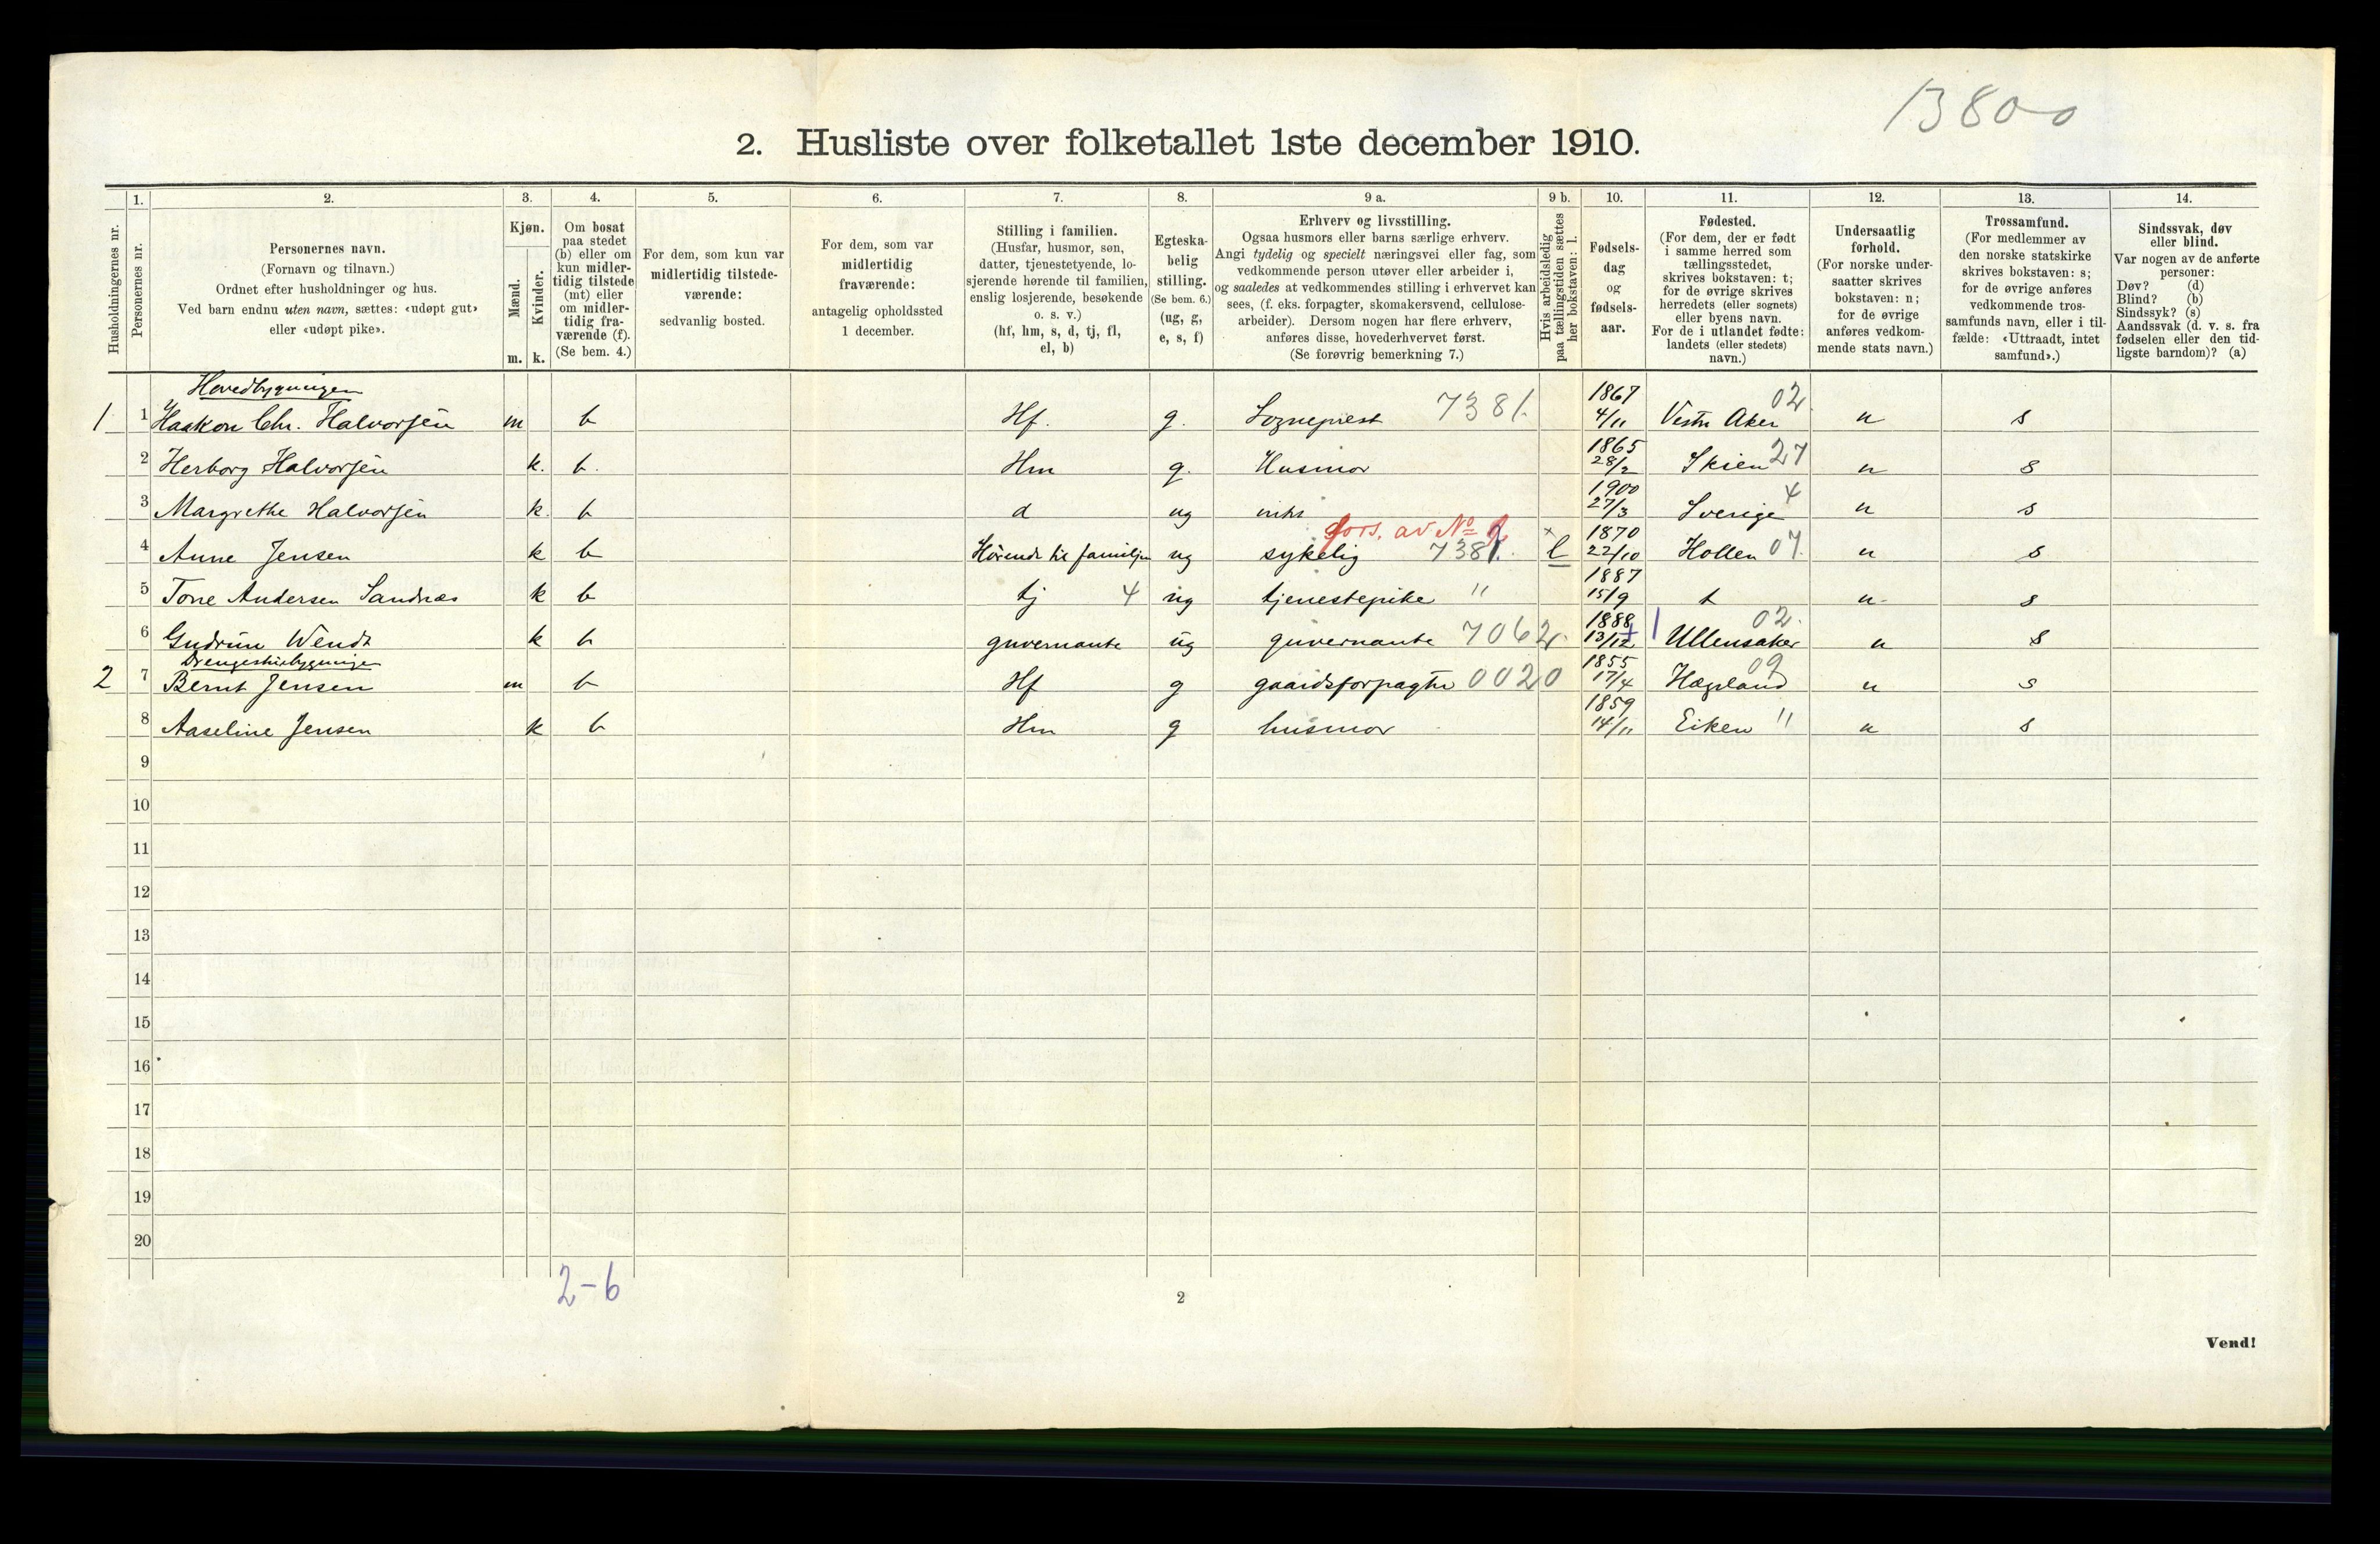 13800
2. Husliste over folketallet 1ste december 1910.
1. 2. 3. 4. 5. 6. 7. 8. 9 a. 9 b. 10. 11. 12. 13. 14.
Husholdningernes nr.
Personernes nr.
Personernes navn.
(Fornavn og tilnavn.)
Ordnet efter husholdninger og hus.
Ved barn endnu uten navn, sættes: «udøpt gut»
eller «udøpt pike».
Kjøn.
Mænd.
Kvinder.
m. k.
Om bosat
paa stedet
(b) eller om
kun midler-
tidig tilstede
(mt) eller
om midler-
tidig fra-
værende (f).
(Se bem. 4.)
For dem, som kun var
midlertidig tilstede-
værende:
sedvanlig bosted.
For dem, som var
midlertidig
fraværende:
antagelig opholdssted
1 december.
Stilling i familien.
(Husfar, husmor, søn,
datter, tjenestetyende, lo-
sjerende hørende til familien,
enslig losjerende, besøkende
o. s. v.)
(hf, hm, s, d, tj, fl,
el, b)
Egteska-
belig
stilling.
(Se bem. 6.)
(ug, g,
e, s, f)
Erhverv og livsstilling.
Ogsaa husmors eller barns særlige erhverv.
Angi tydelig og specielt næringsvei eller fag, som
vedkommende person utøver eller arbeider i,
og saaledes at vedkommendes stilling i erhvervet kan
sees, (f. eks. forpagter, skomakersvend, cellulose-
arbeider). Dersom nogen har flere erhverv,
anføres disse, hovederhvervet først.
(Se forøvrig bemerkning 7.)
Hvis arbeidsledig
paa tællingstiden sættes
her bokstaven: l.
Fødsels-
dag
og
fødsels-
aar.
Fødested.
(For dem, der er født
i samme herred som
tællingsstedet,
skrives bokstaven: t;
for de øvrige skrives
herredets (eller sognets)
eller byens navn.
For de i utlandet fødte:
landets (eller stedets)
navn.)
Undersaatlig
forhold.
(For norske under-
saatter skrives
bokstaven: n;
for de øvrige
anføres vedkom-
mende stats navn.)
Trossamfund.
(For medlemmer av
den norske statskirke
skrives bokstaven: s;
for de øvrige anføres
vedkommende tros-
samfunds navn, eller i til-
fælde: «Uttraadt, intet
samfund».)
Sindssvak, døv
eller blind.
Var nogen av de anførte
personer:
Døv? (d)
Blind? (b)
Sindssyk? (s)
Aandssvak (d. v. s. fra
fødselen eller den tid-
ligste barndom)? (a)
Hovedbygningen
1 1 Haakon Chr. Halvorsen m b Hf. g. Sogneprest 7381. 1867 4/11 Vestre Aker 02. n s
2 Herborg Halvorsen k. b. Hm g. Husmor 1865 28/2 Skien 27 n s
3 Margrethe Halvorsen k. b d ug 1900 27/3 Sverige 4 n s
fors. av No
4 Anne Jensen k b Hørende til familjen ug sykelig 7381. x l 1870 22/10 Hollen 07. n s
5 Tone Andersen Sandnæs k b tj 4 ug tjenestepike " 1887 15/9 t n s
6 Gudrun Wendt k b guvernante ug guvernante 7062. 1888 13/12 Ullensaker 02. n s
Drengestubygningen
2 7 Bernt Jensen m b Hf g gaardsforpagter 0020 1855 17/4 Hægeland 09 n s
8 Aaseline Jensen k b Hm g husmor 1859 14/11 Eiken " n s
9
10
11
12
13
14
15
16
17
18
19
20
2-6
2
Vend!